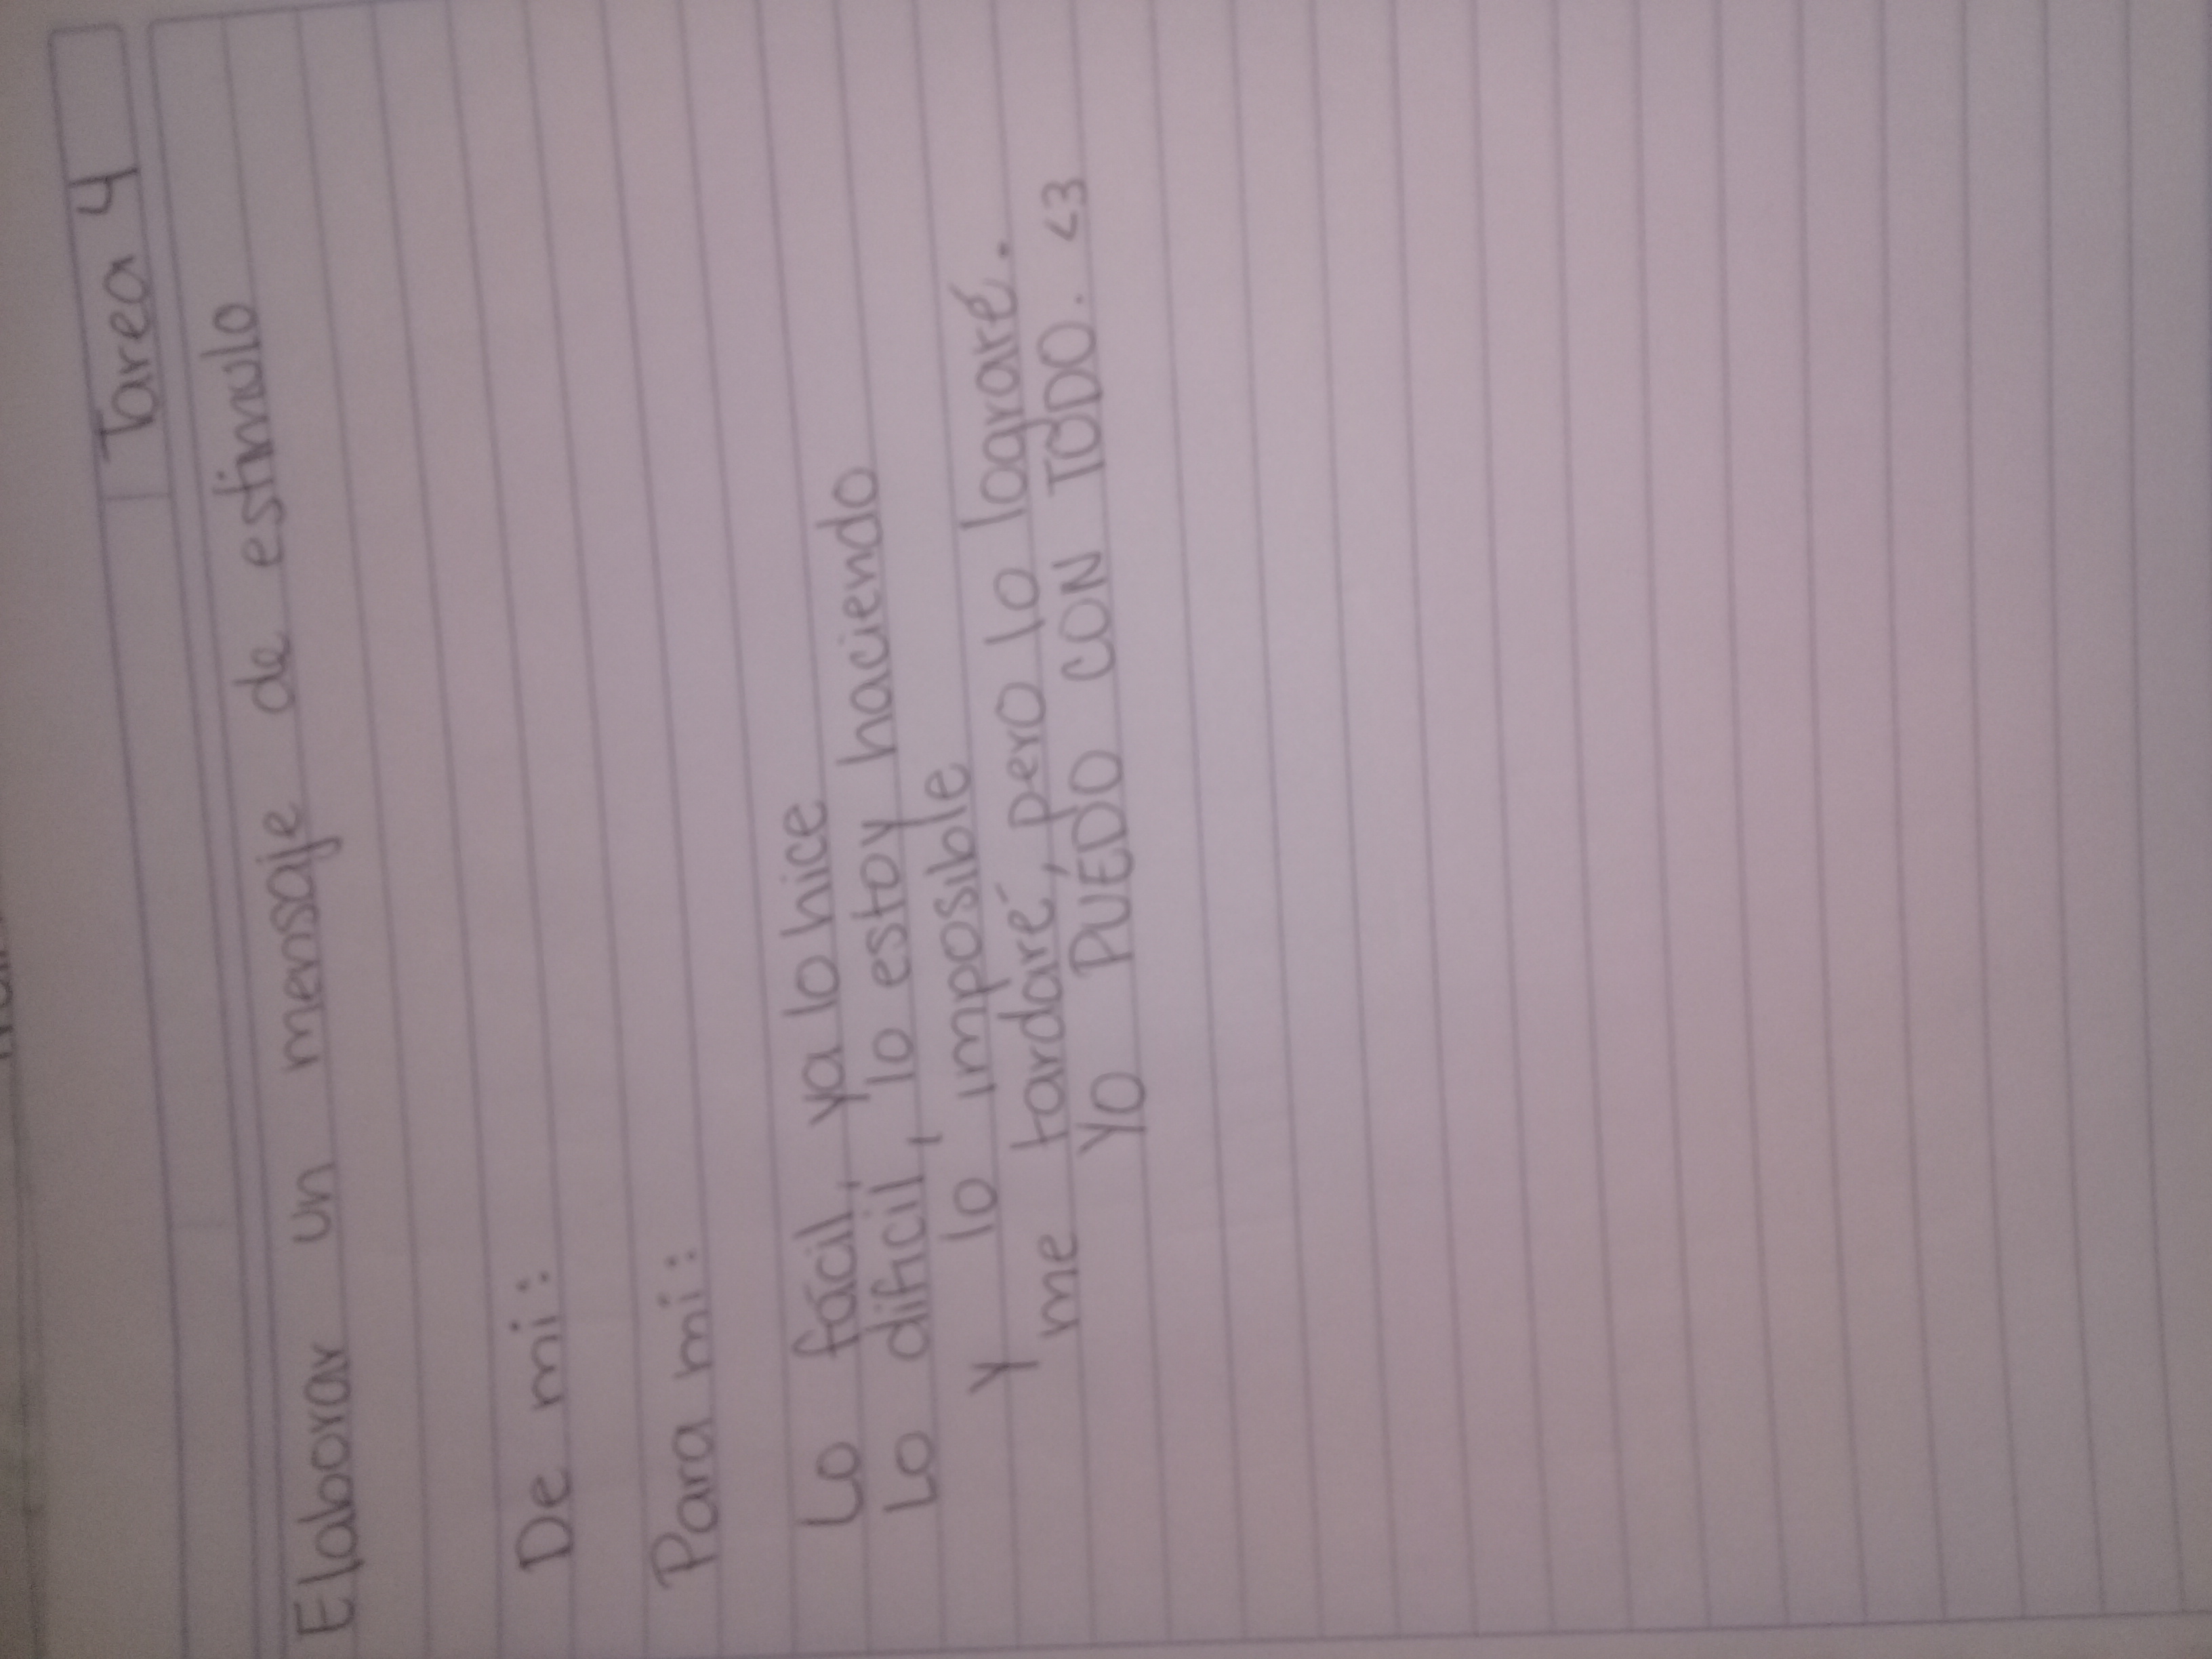 Tarea 4
Elaborar un mensaje de estimulo
De mi:
Para mi:
Lo fácil, ya lo hice
Lo dificil, lo estoy haciendo
Y lo imposible
me tardaré, pero lo lograré.
YO PUEDO CON TODO. <3